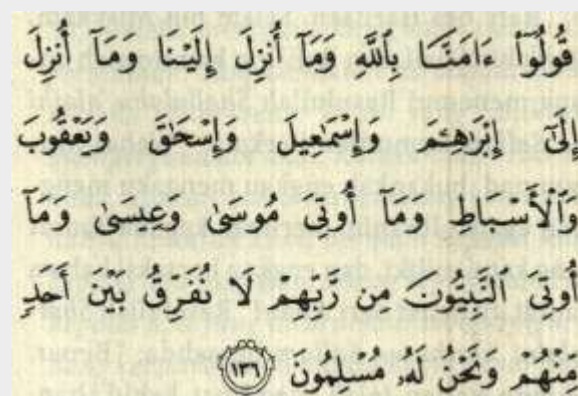 قُولُوٓا۟ ءَامَنَّا بِٱللَّهِ وَمَآ أُنزِلَ إِلَيْنَا وَمَآ أُنزِلَ
إِلَىٰٓ إِبْرَٰهِـۧمَ وَإِسْمَـٰعِيلَ وَإِسْحَـٰقَ وَيَعْقُوبَ
وَٱلْأَسْبَاطِ وَمَآ أُوتِىَ مُوسَىٰ وَعِيسَىٰ وَمَآ
أُوتِىَ ٱلنَّبِيُّونَ مِن رَّبِّهِمْ لَا نُفَرِّقُ بَيْنَ أَحَدٍ
مِّنْهُمْ وَنَحْنُ لَهُۥ مُسْلِمُونَ ١٣٦